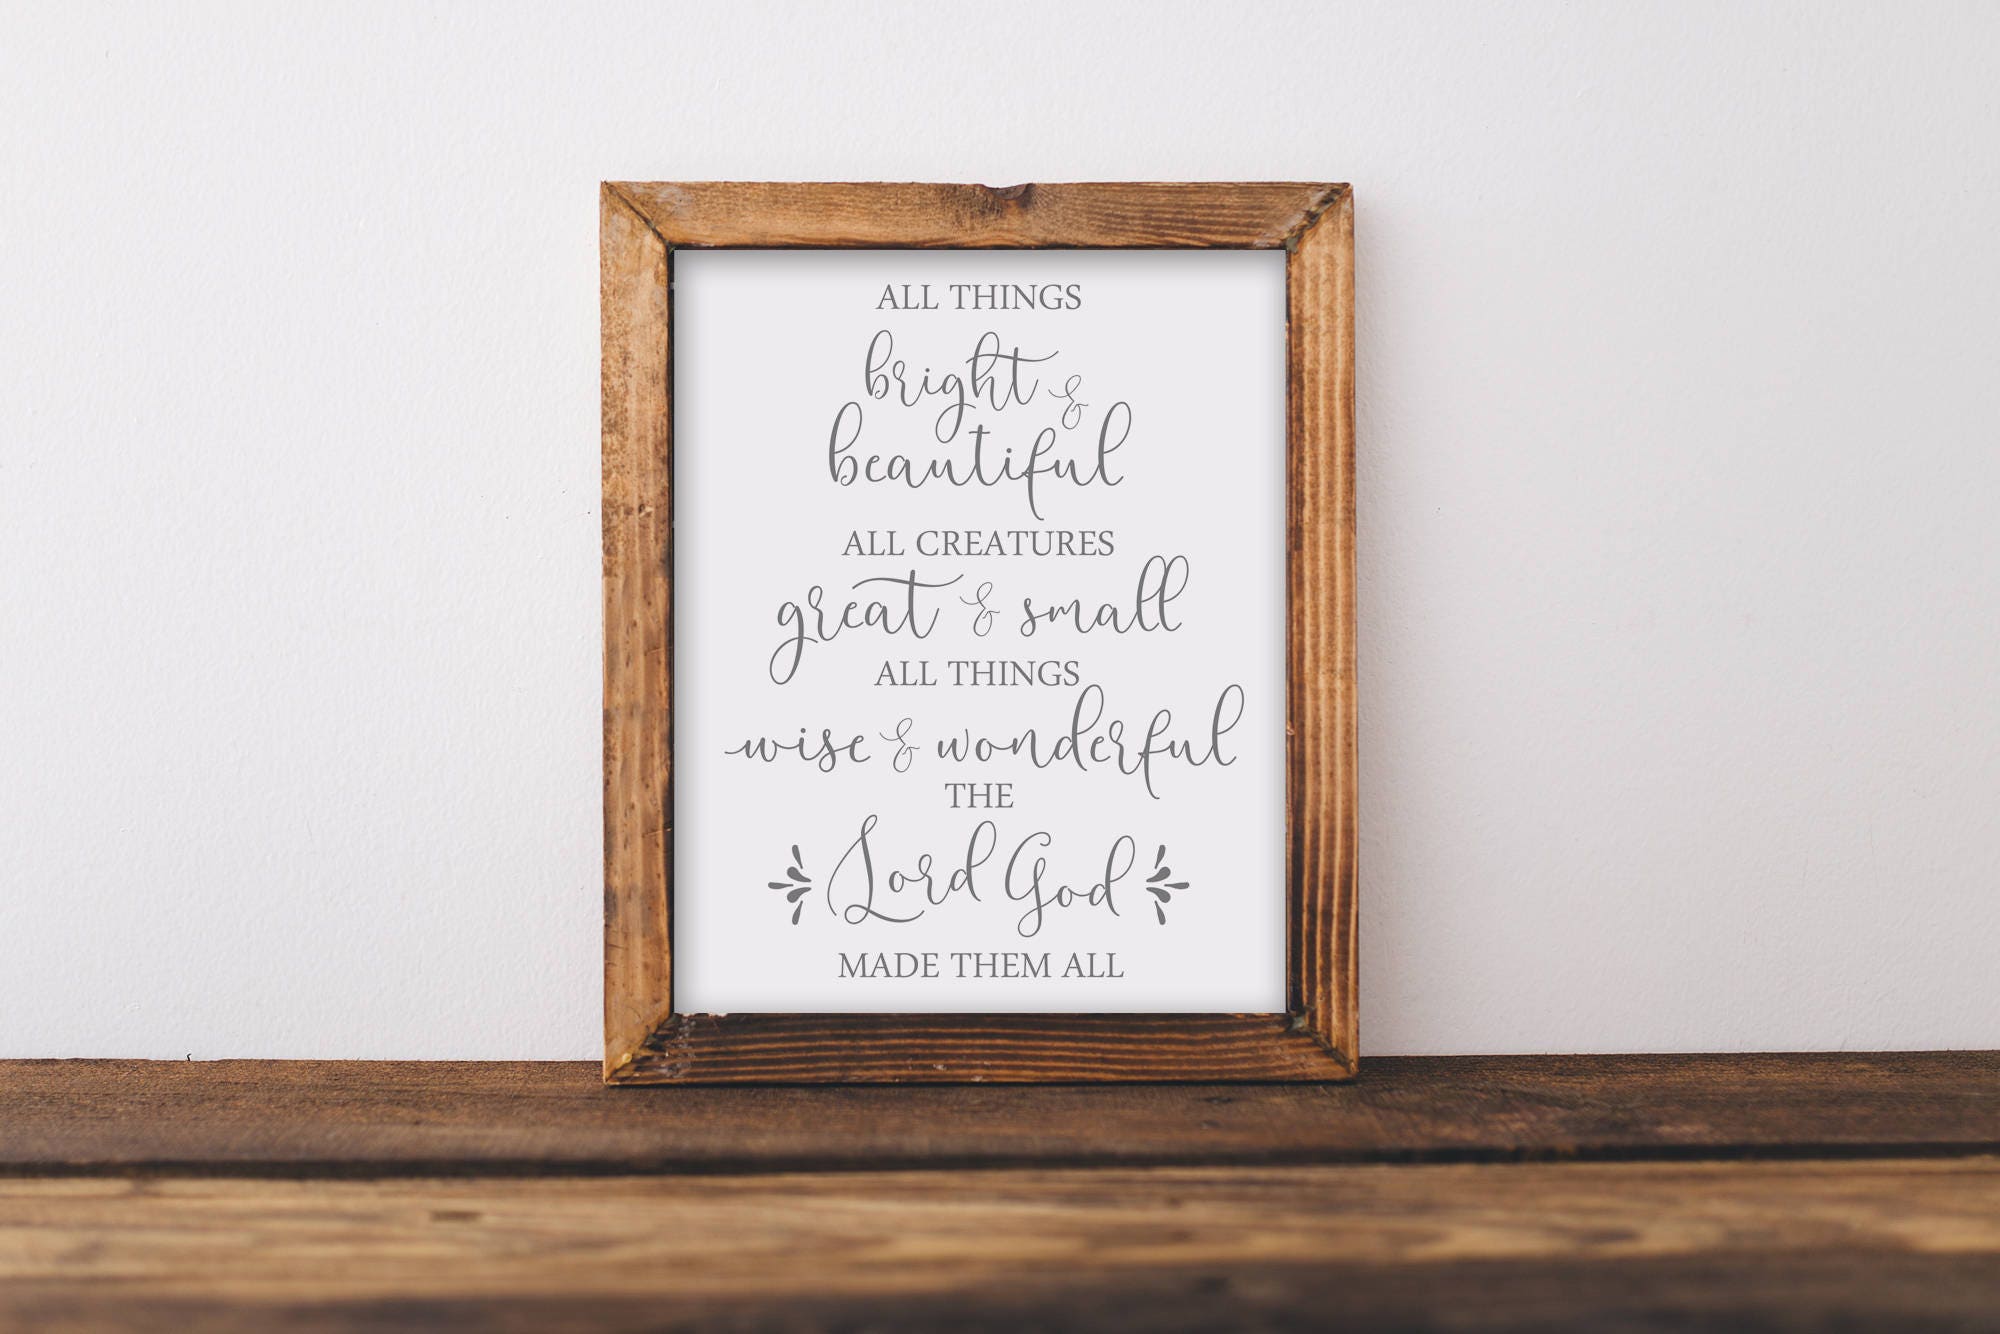 ALL THINGS
bright &
beautiful
ALL CREATURES
great & small
ALL THINGS
wise & wonderful
THE
Lord God
MADE THEM ALL